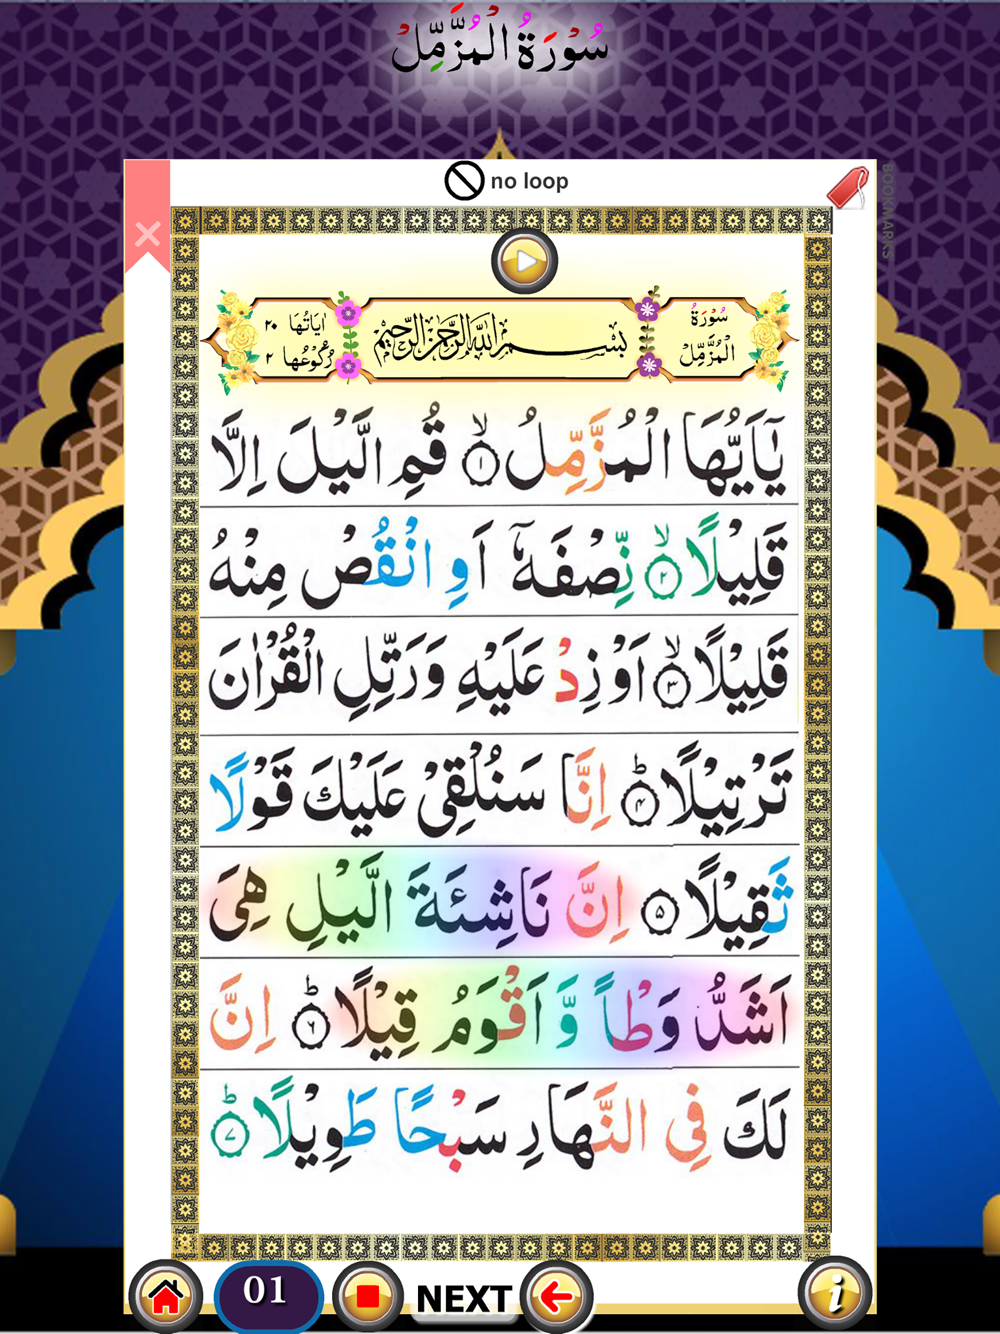 سُوْرَةُ الْمُزَّمِّلِ
no loop
BOOKMARKS
سُوْرَةُ الْمُزَّمِّلْ
بِسْمِ اللهِ الرَّحْمٰنِ الرَّحِيْمِ
اٰيَاتُهَا ٢٠
رُكُوْعُهَا ٢
يٰۤاَيُّهَا الْمُزَّمِّلُ ۙ﴿۱﴾ قُمِ الَّيْلَ اِلَّا
قَلِيْلًا ۙ﴿۲﴾ نِّصْفَهٗۤ اَوِ انْقُصْ مِنْهُ
قَلِيْلًا ۙ﴿۳﴾ اَوْ زِدْ عَلَيْهِ وَرَتِّلِ الْقُرْاٰنَ
تَرْتِيْلًا ؕ﴿۴﴾ اِنَّا سَنُلْقِىْ عَلَيْكَ قَوْلًا
ثَقِيْلًا ﴿۵﴾ اِنَّ نَاشِئَةَ الَّيْلِ هِىَ
اَشَدُّ وَطْاً وَّ اَقْوَمُ قِيْلًا ؕ﴿۶﴾ اِنَّ
لَكَ فِى النَّهَارِ سَبْحًا طَوِيْلًا ؕ﴿۷﴾
01
NEXT
i